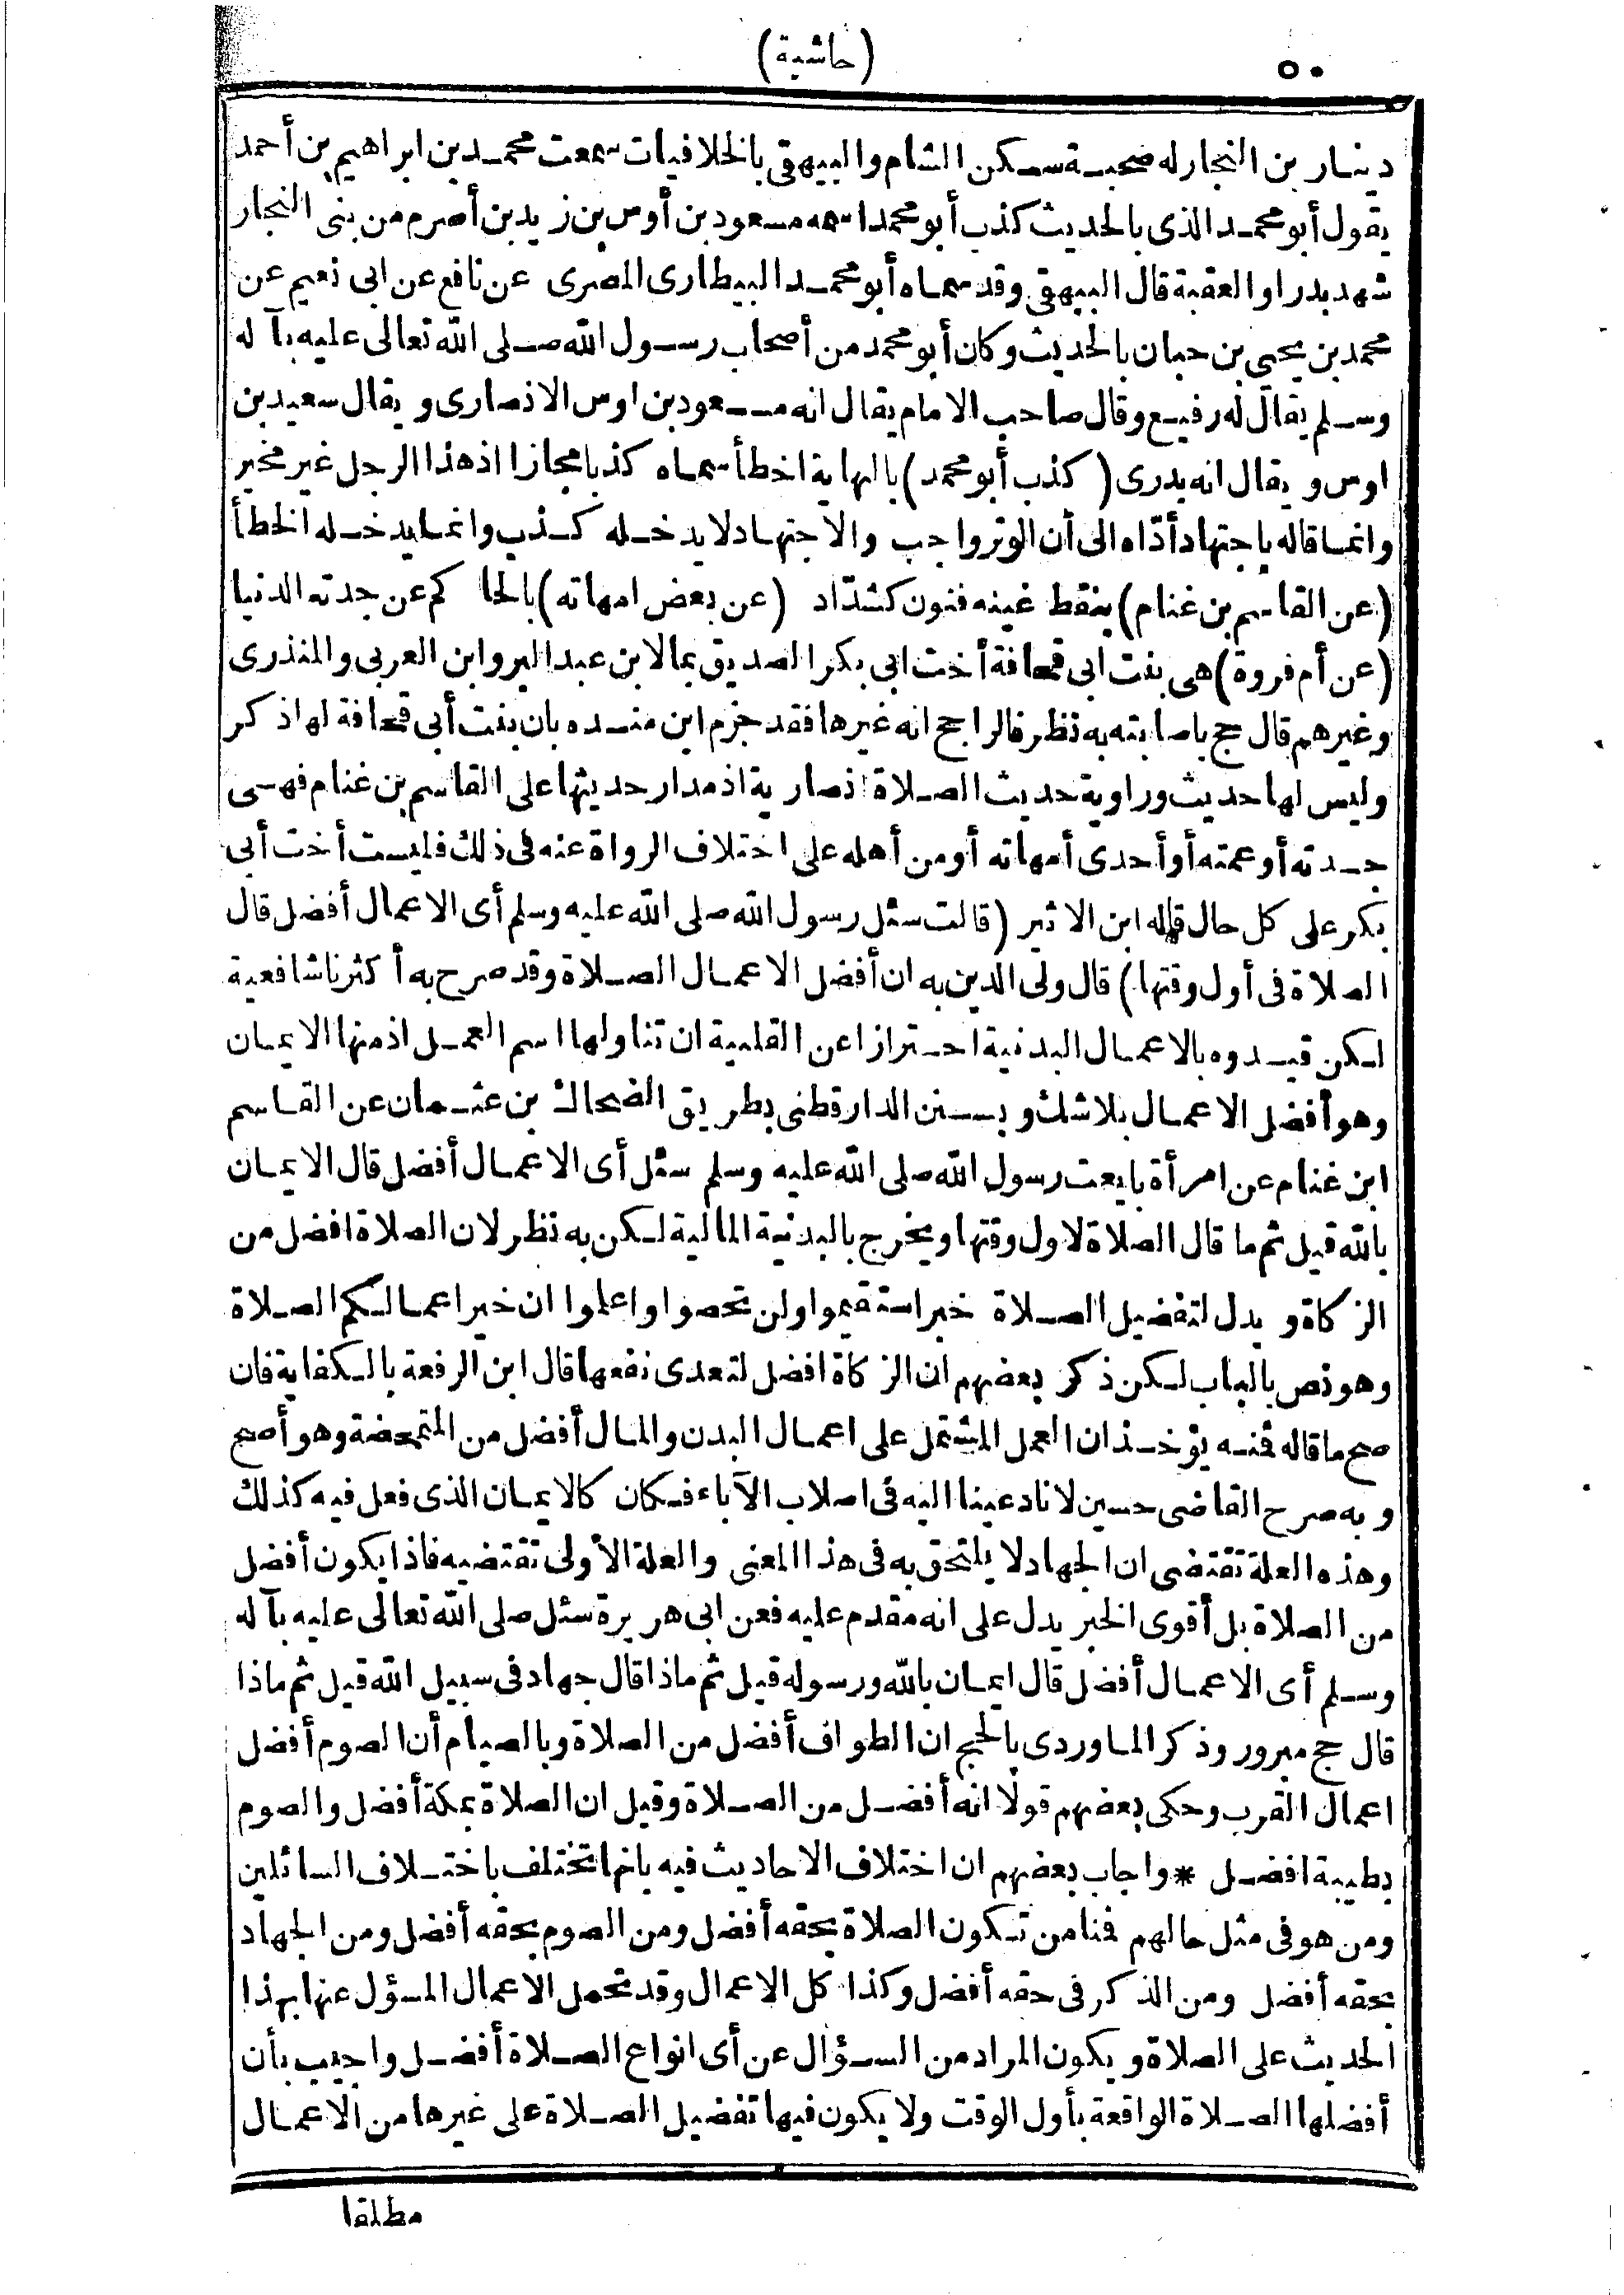 (حاشية)
٥٠
دينار بن النجار له صحبة سكن الشام والبيهقي بالخلافيات سمعت محمد بن ابراهيم بن أحمد
يقول أبو محمد الذي بالحديث كذب أبو محمد اسمه مسعود بن أوس بن زيد بن أصرم من بني النجار
شهد بدرا والعقبة قال البيهقي وقد سماه أبو محمد البيطارى المصرى عن نافع عن ابى نعيم عن
محمد بن يحيى بن حبان بالحديث وكان أبو محمد من أصحاب رسول الله صلى الله تعالى عليه بآله
وسلم يقال له رفيع وقال صاحب الامام يقال انه مسعود بن اوس الانصارى ويقال سعيد بن
اوس ويقال انه بدرى (كذب أبو محمد) بالنهاية اخطأ سماه كذبا مجازا اذ هذا الرجل غير مخبر
وانما قاله باجتهاد أدّاه الى أن الوتر واجب والاجتهاد لا يدخله كذب وانما يدخله الخطأ
(عن القاسم بن غنام) بنقط غينه فنون كشدّاد (عن بعض امهاته) بالحاكم عن جدته الدنيا
(عن أم فروة) هى بنت ابى قحافة أخت ابى بكر الصديق بمالابن عبد البر وابن العربى والمنذرى
وغيرهم قال حج باصابته به نظر فالراجح انه غيرها فقد جزم ابن منده بان بنت أبى قحافة لها ذكر
وليس لها حديث وراوية حديث الصلاة انصارية اذ مدار حديثها على القاسم بن غنام فهى
جدته أو عمته أو أحدى أمهاته أو من أهله على اختلاف الرواة عنه فى ذلك فليست أخت أبى
بكر على كل حال قاله ابن الاثير (قالت سئل رسول الله صلى الله عليه وسلم أى الاعمال أفضل قال
الصلاة فى أول وقتها) قال ولى الدين به ان أفضل الاعمال الصلاة وقد صرح به أكثرنا شافعية
لكن قيدوه بالاعمال البدنية احترازا عن القلبية ان تناولها اسم العمل اذ منها الايمان
وهو أفضل الاعمال بلا شك وبسنن الدارقطنى بطريق الضحاك بن عثمان عن القاسم
ابن غنام عن امرأة بايعت رسول الله صلى الله عليه وسلم سئل أى الاعمال أفضل قال الايمان
بالله قيل ثم ما قال الصلاة لاول وقتها ويخرج بالبدنية المالية لكن به نظر لان الصلاة افضل من
الزكاة ويدل لتفضيل الصلاة خبر استقيموا ولن تحصوا واعلموا ان خير اعمالكم الصلاة
وهو نص بالباب لكن ذكر بعضهم ان الزكاة افضل لتعدى نفعها قال ابن الرفعة بالكفاية فان
صح ما قاله فمنه يؤخذ ان العمل المشتمل على اعمال البدن والمال أفضل من المتمحضة وهو أصح
وبه صرح القاضى حسين لانا دعينا اليه فى اصلاب الآباء فكان كالايمان الذى فعل فيه كذلك
وهذه العلة تقتضى ان الجهاد لا يلتحق به فى هذا المعنى والعلة الأولى تقتضيه فاذا يكون أفضل
من الصلاة بل أقوى الخبر يدل على انه مقدم عليه فعن ابى هريرة سئل صلى الله تعالى عليه بآله
وسلم أى الاعمال أفضل قال ايمان بالله ورسوله قيل ثم ماذا قال جهاد فى سبيل الله قيل ثم ماذا
قال حج مبرور وذكر الماوردى بالحج ان الطواف أفضل من الصلاة وبالصيام أن الصوم أفضل
اعمال القرب وحكى بعضهم قولا انه أفضل من الصلاة وقيل ان الصلاة بمكة أفضل والصوم
بطيبة افضل * واجاب بعضهم ان اختلاف الاحاديث فيه بانها تختلف باختلاف السائلين
ومن هو فى مثل حالهم فمنا من تكون الصلاة بحقه أفضل ومن الصوم بحقه أفضل ومن الجهاد
بحقه أفضل ومن الذكر فى حقه أفضل وكذا كل الاعمال وقد تحمل الاعمال المسؤل عنها بهذا
الحديث على الصلاة ويكون المراد من السؤال عن أى انواع الصلاة أفضل واجيب بأن
أفضلها الصلاة الواقعة بأول الوقت ولا يكون فيها تفضيل الصلاة على غيرها من الاعمال
مطلقا